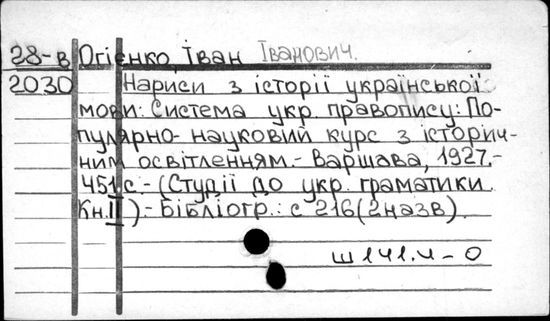 28-в Огієнко, Іван Іванович.
2030 Нариси з історії української
мови: Система укр. правопису: По-
пулярно-науковий курс з історич-
ним освітленням.- Варшава, 1927.-
451 с.- (Студії до укр. граматики.
Кн.II).- Бібліогр.: с 216 (2 назв).
Ш141.4-0